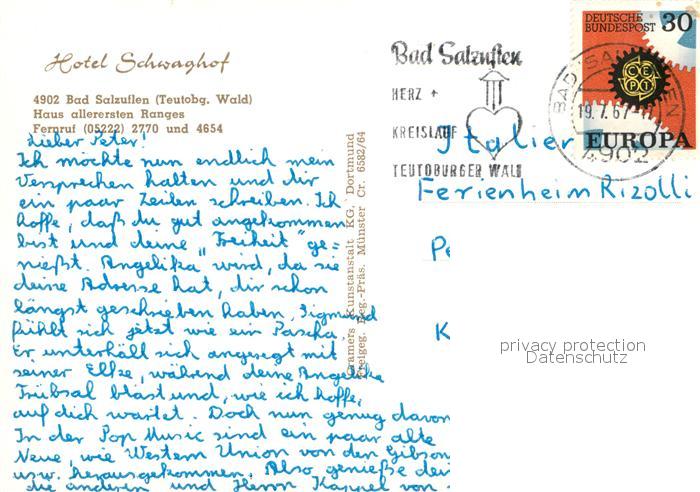 Hotel Schwaghof
4902 Bad Salzuflen (Teutobg. Wald)
Haus allerersten Ranges
Fernruf (05222) 2770 und 4654
Lieber Peter!
Ich möchte nun endlich mein
Versprechen halten und dir
ein paar Zeilen schreiben. Ich
hoffe, daß du gut angekommen
bist und deine „Freiheit" ge-
nießt. Angelika wird, da sie
deine Adresse hat, dir schon
längst geschrieben haben. Sigmund
fühlt sich jetzt wie ein Pascha.
Er unterhält sich angeregt mit
seiner Elfze, während deine Angelika
Trübsal bläst und, wie ich hoffe,
auf dich wartet. Doch nun genug davon
In der Pop Music sind ein paar alte
Neue, wie Western Union von den Gibson
usw. herausgekommen. Also genieße dei
die anderen und Herrn Kappel von
Cramers Kunstanstalt KG, Dortmund
Freigeg. Reg.-Präs. Münster Cr. 6582/64
Bad Salzuflen
HERZ +
KREISLAUF
TEUTOBURGER WALD
DEUTSCHE
BUNDESPOST 30
CEPT
EUROPA
BAD SALZUFLEN
19.7.67
4902
Italien
Ferienheim Rizolli
Pe
K
privacy protection
Datenschutz